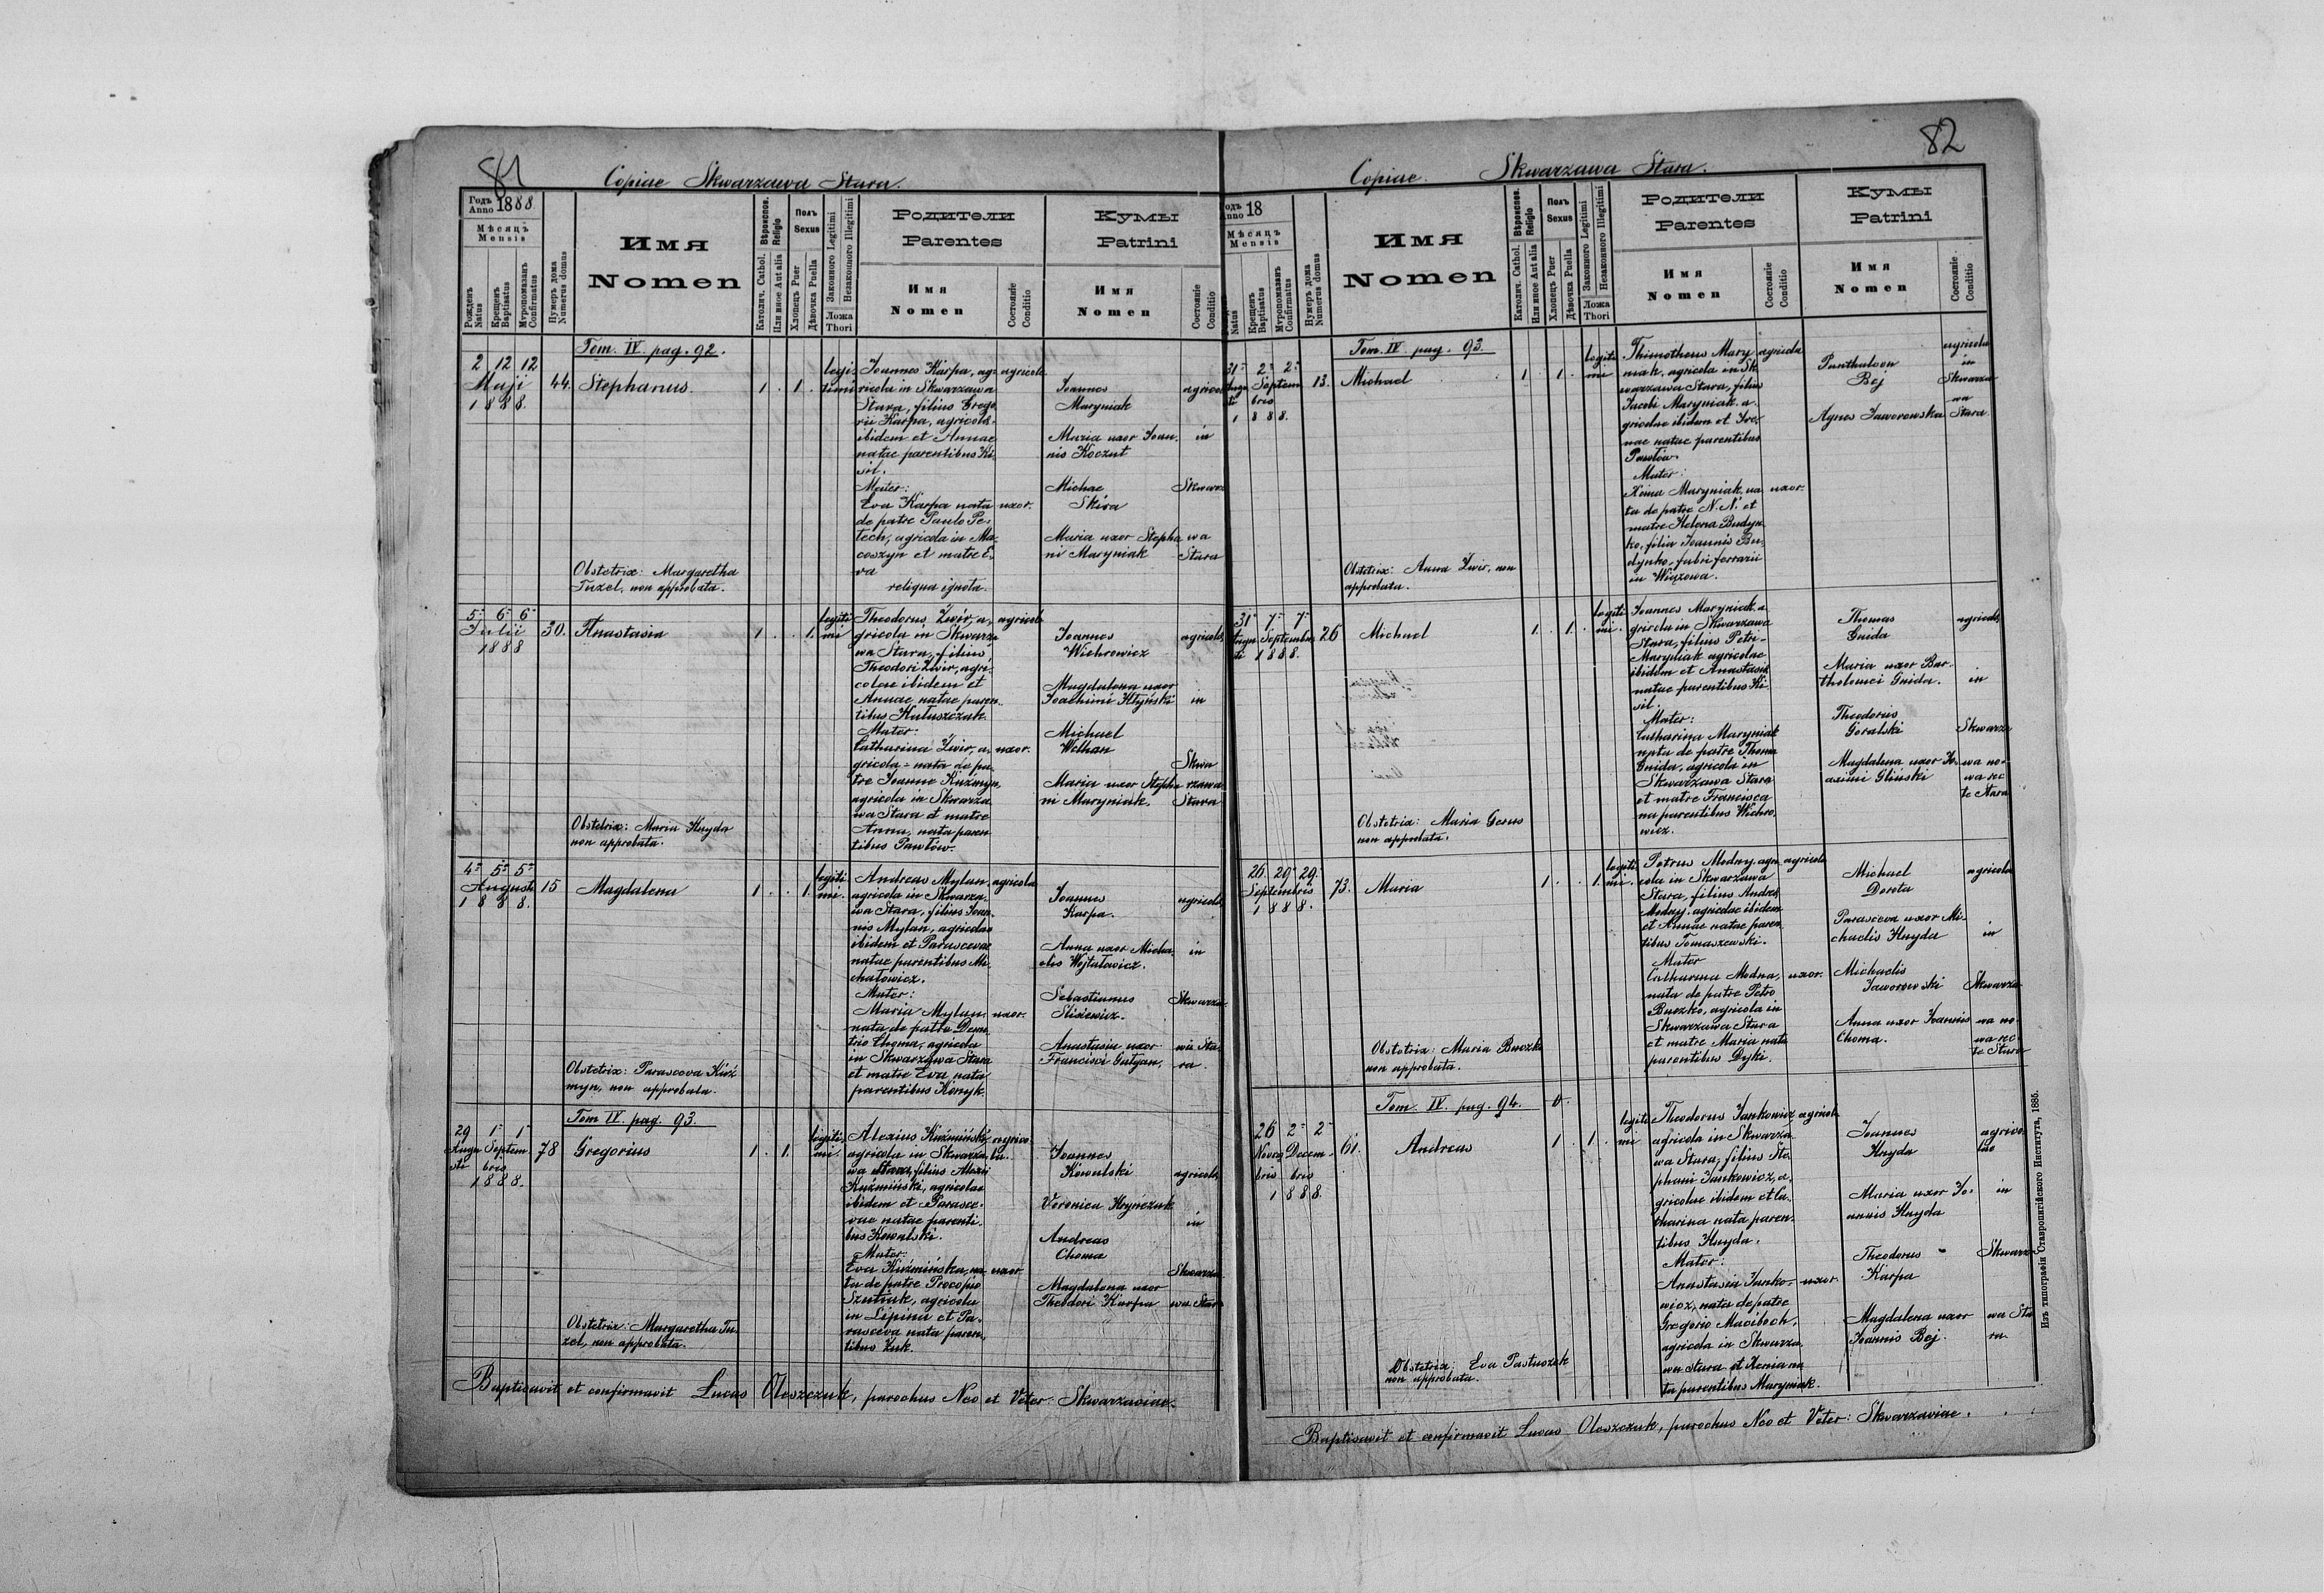 81
Copiae Skwarzawa Stara.
Годъ Anno 1888
Мѣсяцъ
Mensis
Рожденъ Natus
Крещенъ Baptisatus
Мѵропомазанъ Confirmatus
Нумеръ дома Numerus domus
Имя
Nomen
Вѣроиспов. Religio
Католич. Cathol.
Или иное Aut alia
Полъ Sexus
Хлопецъ Puer
Дѣвочка Puella
Законного Legitimi
Незаконного Illegitimi
Ложа Thori
Родители
Parentes
Имя
Nomen
Состояніе Conditio
Кумы
Patrini
Имя
Nomen
Состояніе Conditio
Tom. IV. pag. 92.
2 12 12
Maji
1888.
44.
Stephanus.
1. . 1. .
legi-
timi
Joannes Karpa, ag-
ricola in Skwarzawa
Stara, filius Grego
rii Karpa, agricolae
ibidem et Annae
natae parentibus Ki
sil.
Mater:
Eva Karpa nata
de patre Paulo Pe-
tech, agricola in Ma
coszyn et matre E-
va
reliqua ignota.
agricola
uxor.
Joannes
Maryniak
Maria uxor Joan-
nis Koczut
Michae
Skira
Maria uxor Stepha
ni Maryniak
agricolae
in
Skwarz
wa
Stara
Obstetrix: Margaretha
Tuzel, non approbata.
5 6 6
Julii
1888
30.
Anastasia
1. . . 1.
legiti
mi
Theodorus Żwir, a-
gricola in Skwarza
wa Stara, filius
Theodori Żwir, agri-
colae ibidem et
Annae, natae paren-
tibus Hałuszczak.
Mater:
Catharina Żwir, a-
gricola - nata de pa-
tre Joanne Kuźmyn,
agricola in Skwarza
wa Stara et matre
Anna, nata paren
tibus Pawłów.
agricola
uxor.
Joannes
Wichrowicz
Magdalena uxor
Joachimi Hłyński
Michael
Wethan
Maria uxor Stepha
ni Maryniak.
agricolae
in
Skwa
rzawa
Stara
Obstetrix: Maria Hnyda
non approbata.
4 5 5
Augusti
1888.
15
Magdalena
1. . . 1.
legiti
mi.
Andreas Mylan,
agricola in Skwarza-
wa Stara, filius Joan-
nis Mylan, agricolae
ibidem et Parascevae
natae parentibus Mi-
chałowicz.
Mater:
Maria Mylan,
nata de patre Deme
trio Choma, agricola
in Skwarzawa Stara
et matre Eva nata
parentibus Konyk.
agricola
uxor.
Joannes
Karpa.
Anna uxor Micha
elis Wojtałowicz.
Sebastianus
Slisiewicz.
Anastasia uxor
Francisci Gutyan,
agricolae
in
Skwarza-
wa Sta-
ra.
Obstetrix: Parasceva Kuź
myn, non approbata.
Tom. IV. pag. 93.
29 1 1
Augu Septem
sti bris
1888.
78
Gregorius
1. . 1. .
legiti
mi.
Alexius Kuźmiński,
agricola in Skwarza-
wa Stara, filius Alexii
Kuźmiński, agricolae
ibidem et Parasce-
vae natae parenti-
bus Kowalski.
Mater:
Eva Kuźmińska, na
ta de patre Procopio
Szutiak, agricola
in Lipina et Pa-
rasceva nata paren-
tibus Żuk.
agrico-
la.
uxor
Joannes
Kowalski
Veronica Hryńczuk
Andreas
Choma
Magdalena uxor
Theodori Karpa
agricolae
in
Skwarza
wa Stara
Obstetrix: Margaretha Tu-
zel, non approbata.
Baptisavit et confirmavit Lucas Oleszczuk, parochus Neo et Veter: Skwarzaviae.
82
Copiae. Skwarzawa Stara.
Годъ Anno 18
Мѣсяцъ
Mensis
Рожденъ Natus
Крещенъ Baptisatus
Мѵропомазанъ Confirmatus
Нумеръ дома Numerus domus
Имя
Nomen
Вѣроиспов. Religio
Католич. Cathol.
Или иное Aut alia
Полъ Sexus
Хлопецъ Puer
Дѣвочка Puella
Законного Legitimi
Незаконного Illegitimi
Ложа Thori
Родители
Parentes
Имя
Nomen
Состояніе Conditio
Кумы
Patrini
Имя
Nomen
Состояніе Conditio
Tom. IV. pag. 93.
31 2 2
Augu Septem
sti bris
1888.
13.
Michael
1. . 1. .
legiti
mi
Thimotheus Mary
niak, agricola in Sk
warzawa Stara, filius
Jacobi Maryniak a-
gricolae ibidem et Ire-
nae natae parentibus
Pawłów.
Mater:
Xenia Maryniak, na
ta de patre N. N. et
matre Helena Budyn
ko, filia Joannis Bu-
dynko, fabri ferrarii
in Wiązowa.
agricola
uxor.
Panthaleon
Bej
Agnes Jaworowska
agricolae
in
Skwarza
wa
Stara
Obstetrix: Anna Żwir, non
approbata.
31 7 7
Augu Septembris
sti 1888.
26
Michael
1. . 1. .
legiti
mi.
Joannes Maryniak a
gricola in Skwarzawa
Stara, filius Petri
Maryniak agricolae
ibidem et Anastasiae
natae parentibus Ki
sil.
Mater:
Catharina Maryniak
nata de patre Thoma
Gnida, agricola in
Skwarzawa Stara
et matre Francisca
na parentibus Wichro
wicz.
Thomas
Gnida
Maria uxor Bar-
tholomei Gnida.
Theodorus
Goralski
Magdalena uxor Jo-
axini Gliński
agricolae
in
Skwarza
wa no-
wa rec
te Stara
Obstetrix: Maria Gerus
non approbata.
26. 29. 29.
Septembris
1888.
73.
Maria
1. . . 1.
legiti
mi.
Petrus Modny, agri
cola in Skwarzawa
Stara, filius Andreae
Modny, agricolae ibidem
et Annae natae paren
tibus Tomaszewski.
Mater
Catharina Modna,
nata de patre Petro
Buczko, agricola in
Skwarzawa Stara
et matre Maria nata
parentibus Dyki.
agricola
uxor.
Michael
Dorota
Parasceva uxor Mi-
chaelis Hnyda
Michaelis
Jaworowski
Anna uxor Joannis
Choma.
agricolae
in
Skwarza
wa no-
wa rec-
te Stara
Obstetrix: Maria Buczko
non approbata.
Tom. IV. pag. 94.
26 2 2
Novem Decem-
bris bris
1888.
61.
Andreas
1. . 1. .
legiti
mi
Theodorus Jankowicz
agricola in Skwarza
wa Stara, filius Ste
phani Jankowicz, a-
gricolae ibidem et Ca-
tharina nata paren-
tibus Hnyda.
Mater:
Anastasia Janko-
wicz, nata de patre
Gregorio Maciboch,
agricola in Skwarza
wa Stara et Xenia na
ta parentibus Maryniak.
agricola
uxor
Joannes
Hnyda
Maria uxor Jo-
annis Hnyda
Theodorus
Karpa
Magdalena uxor
Joannis Bej.
agrico-
lae
in
Skwarza
wa Sta
ra
Obstetrix: Eva Pastuszek
non approbata.
Baptisavit et confirmavit Lucas Oleszczuk, parochus Neo et Veter: Skwarzaviae.
Изъ типографіи Ставропигійского Института, 1885.